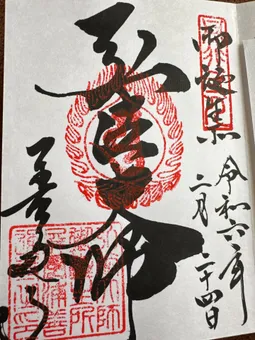 御誕生所
令和六年
二月二十四日
弘法大師
善通寺